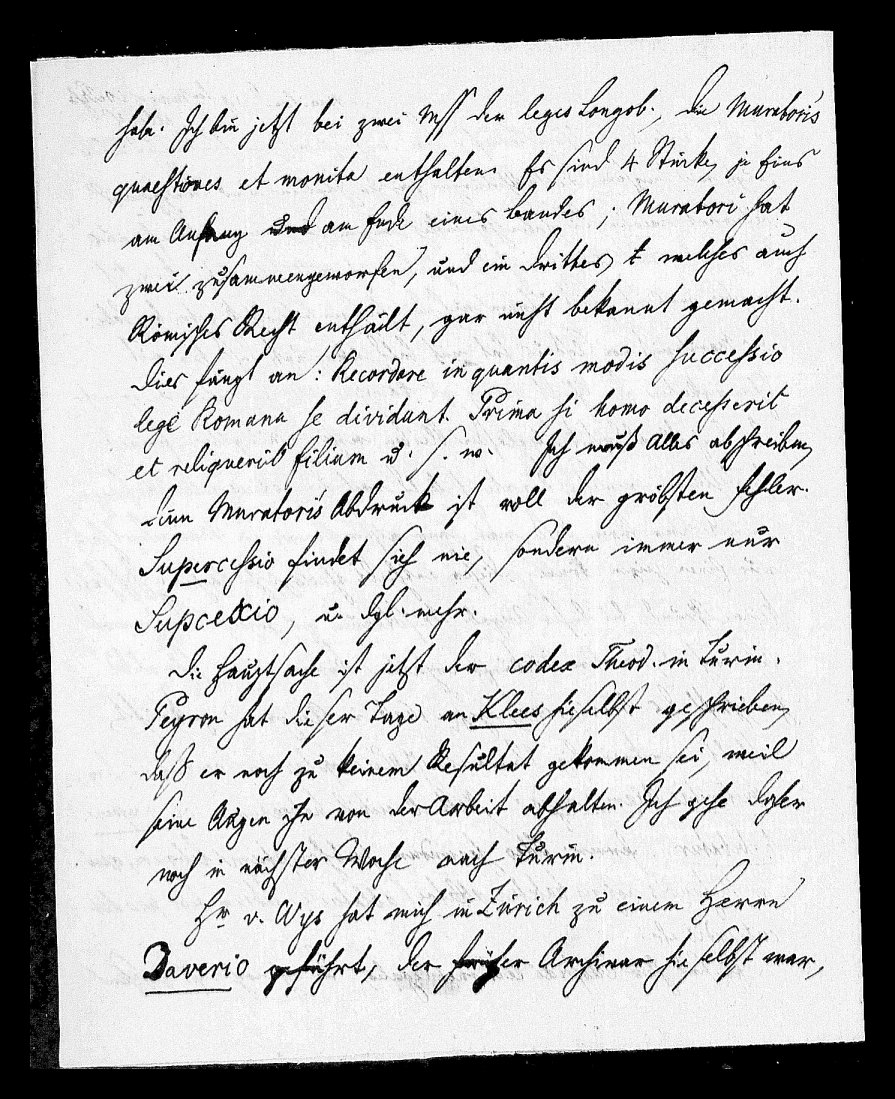 habe. Ich bin jetzt bei zwei Mss der leges Longob., die Muratori's
quaestiones et monita enthalten. Es sind 4 Stücke, je Eins
am Anfang und am Ende eines Bandes; Muratori hat
zwei zusammengeworfen, und ein drittes, welches auch
Römisches Recht enthält, gar nicht bekannt gemacht.
Dies fängt an: Recordare in quantis modis successio
lege Romana se dividunt. Prima si homo decesserit
et reliquerit filium u. s. w. Ich muß Alles abschreiben,
denn Muratori's Abdruck ist voll der gröbsten Fehler.
Supercessio findet sich nie, sondern immer nur
Supcessio, u. dgl. mehr.
Die Hauptsache ist jetzt der codex Theod. in Turin.
Peyron hat dieser Tage an Klees hieselbst geschrieben,
daß er noch zu keinem Resultat gekommen sei, weil
seine Augen ihn von der Arbeit abhalten. Ich gehe daher
noch in nächster Woche nach Turin.
Hr v. Wys hat mich in Zürich zu einem Herrn
Daverio geführt, der früher Archivar hieselbst war,